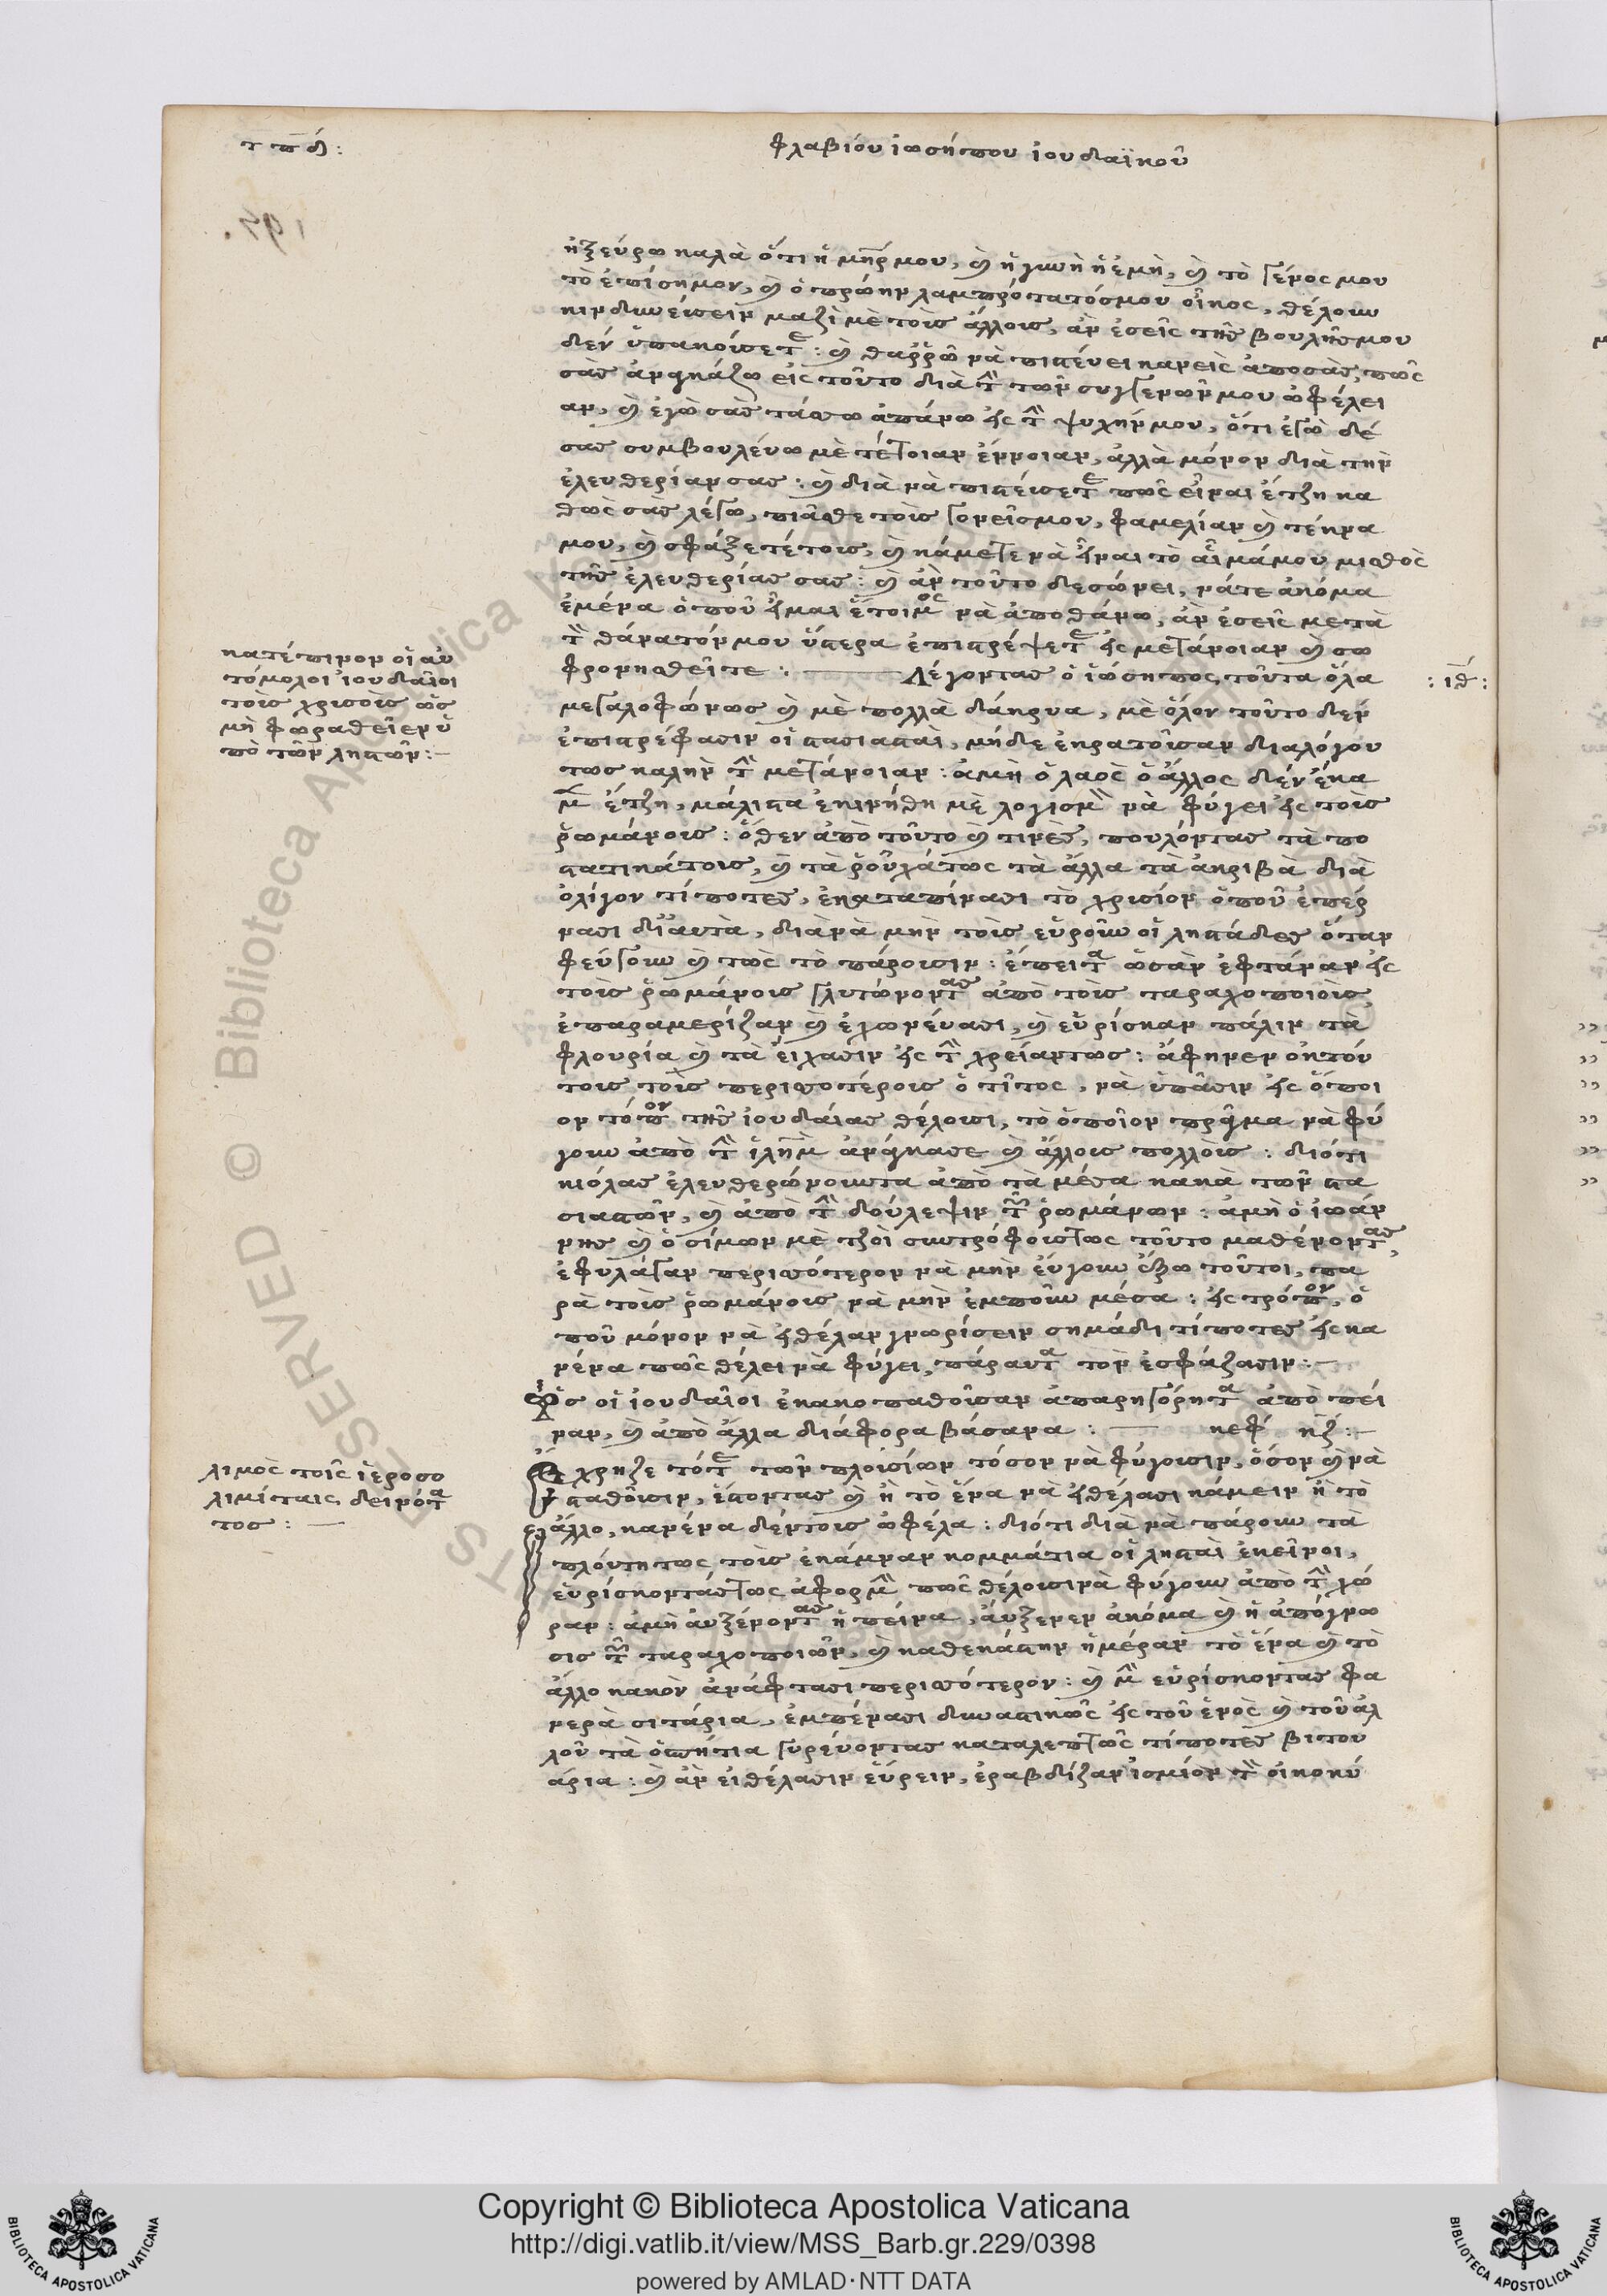 τπδ:
φλαβίου ἰωσήπου ἰουδαϊκοῦ
ἠξεύρω καλὰ ὅτι ἡ μῆρ μου, καὶ ἡ γυνὴ ἡ ἐμὴ, καὶ τὸ γένος μου
τὸ ἐπίσημον, καὶ ὁ πρώην λαμπρότατόσμου οἶκος, θέλουν
κινδυνεύσειν μαζὶ μὲ τοὺς ἄλλους, ἂν ἐσεῖς τῆς βουλῆς μου
δὲν ὑπακούσετε: καὶ θαῤῥῶ νὰ πιστεύει κανεὶς ἀποσᾶς, πῶς
σᾶς ἀναγκάζω εἰς τοῦτο διὰ τὴν τῶν συγγενῶν μου ὠφέλει
αν, καὶ ἐγὼ σᾶς τάσσω ἀπάνω εἰς τὴν ψυχήν μου, ὅτι ἐγὼ δέ
σας συμβουλεύω μὲ τέτοιαν ἔννοιαν, ἀλλὰ μόνον διὰ τὴν
ἐλευθερίαν σας: καὶ διὰ νὰ πιστεύσετε πῶς εἶναι ἔτζη κα
θὼς σᾶς λέγω, πιᾶσθε τοὺς γονεῖσμου, φαμελίαν καὶ τέκνα
μου, καὶ σφάξετέ τους, καὶ κάμετε νὰ εἶναι τὸ αἷμάμου μισθὸς
τῆς ἐλευθερίας σας: καὶ ἂν τοῦτο δεσώνει, νάτε ἀκόμα
ἐμένα ὁποῦ εἶμαι ἕτοιμος νὰ ἀποθάνω, ἂν ἐσεῖς μετὰ
τὸν θάνατόν μου ὕστερα ἐπιστρέψετε εἰς μετάνοιαν καὶ σω
φρονησθεῖτε: Λέγοντας ὁ ἰώσηπος τοῦτα ὅλα
: ιδ :
κατέπινον οἱ αὐ
τόμολοι ἰουδαῖοι
τοὺς χρυσοὺς ὡς
μὴ φωραθεῖεν ὑ
πὸ τῶν ληστῶν:
μεγαλοφώνως καὶ μὲ πολλὰ δάκρυα, μὲ ὅλον τοῦτο δὲν
ἐπιστρέφασιν οἱ στασιασταὶ, μήδε ἐκρατοῦσαν διαλόγου
τως καλὴν τὴν μετάνοιαν: ἀμὴ ὁ λαὸς ὁ ἄλλος δὲν ἔκα
μεν ἔτζη, μάλιστα ἐκινήθη μὲ λογισμὸν νὰ φύγει εἰς τοὺς
ῥωμάνους: ὅθεν ἀπὸ τοῦτο καὶ τινὲς, πουλόντας τὰ πο
στατικάτους, καὶ τὰ ῥοῦχάτως τὰ ἄλλα τὰ ἀκριβὰ διὰ
ὀλίγον τίποτες, ἐκαταπίνασι τὸ χρισίον ὁποῦ ἐπέρ
νασι δι᾽ αυτὰ, διὰνὰ μὴν τοὺς εὕρουν οἱ ληστάδες ὅταν
φεύγουν καὶ τὼς τὸ πάρουσιν: ἔπειτα ὡσὰν ἐφτάναν εἰς
τοὺς ῥωμάνους γλυτώνοντας ἀπὸ τοὺς ταραχοποιοὺς,
ἐπαραμερίζαν καὶ ἐχωνεύασι, καὶ εὑρίσκαν πάλιν τὰ
φλουρία καὶ τὰ εἴχασιν εἰς τὴν χρείαντως: ἄφηνεν ἀπὸ
τοὺς τοὺς περισσοτέρους ὁ τῖτος, νὰ ὑπᾶσιν εἰς ὅποι
ον τόπον τῆς ἰουδαίας θέλουσι, τὸ ὁποῖον πρᾶγμα νὰ φύ
γουν ἀπὸ τὴν ἱλῆμ ἀνάγκασε καὶ ἄλλους πολλοὺς: διότι
κιόλας ἐλευθερώνουντα ἀπὸ τὰ μέσα κακὰ τῶν στα
σιαστῶν, καὶ ἀπὸ τὴν δούλεψιν τῶν ῥωμάνων: ἀμὴ ὁ ἰωάν
νης καὶ ὁ σίμων μὲ τζοὶ συντρόφουςτως τοῦτο μαθένοντας,
ἐφυλάγαν περισσότερον νὰ μὴν εὔγουν ἔξω τοῦτοι, πα
ρὰ τοὺς ῥωμάνους νὰ μὴν ἐμποῦν μέσα: εἰς τρόπον, ὁ
ποῦ μόνον νὰ εἰθέλαν γνωρίσειν σημάδι τίποτες εἰς κα
νένα πῶς θέλει νὰ φύγει, πάραυτα τὸν ἐσφάζασιν:
Πῶς οἱ ἰουδαῖοι ἐκακοπαθοῦσαν ἀπαρηγόρητα ἀπὸ πεί
ναν, καὶ ἀπὸ ἄλλα διάφορα βάσανα: κεφ κζ:
λιμὸς τοῖς ἱεροσο
λιμίταις δεινότα
τος:
Ἔχρηζε τότε τῶν πλουσίων τόσον νὰ φύγουσιν, ὅσον καὶ νὰ
σταθοῦσιν, ἔστοντας καὶ ἢ τὸ ἕνα νὰ εἰθέλασι κάμειν ἢ τὸ
ἄλλο, κανένα δέντους ὠφέλα: διότι διὰ νὰ πάρουν τὰ
πλούτητως τοὺς ἐκάμναν κομμάτια οἱ λησταὶ ἐκεῖνοι,
εὑρίσκοντάςτως ἀφορμὴν πῶς θέλουσινὰ φύγουν ἀπὸ τὴν χώ
ραν: ἀμὴ ἀυξένοντας ἡ πείνα, ἄυξενεν ἀκόμα καὶ ἡ ἀπόγνω
σις τῶν ταραχοποιῶν, καὶ καθεκάστην ἡμέραν τὸ ἕνα καὶ τὸ
ἄλλο κακὸν ἀνάφτασι περισσότερον: καὶ μὴν εὑρίσκοντας φα
νερὰ σιτάρια, ἐμπέναοι δυναστικῶς εἰς τοῦ ἑνὸς καὶ τοῦ ἀλ
λοῦ τὰ ὁσπήτια γυρεύοντας καταλεπτῶς τίποτες βιτου
άρια: καὶ ἂν εἰθέλασιν εὕρειν, ἐραβδίζαν ἰσμίον τὸν οἰκοκύ
Copyright © Biblioteca Apostolica Vaticana
http://digi.vatlib.it/view/MSS_Barb.gr.229/0398
powered by AMLAD·NTT DATA